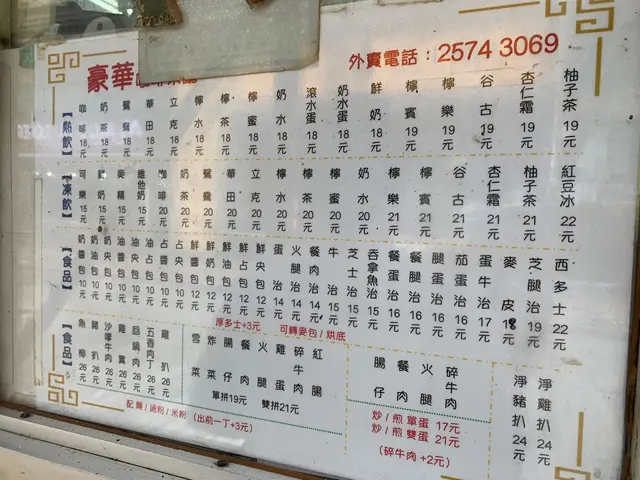 豪華
外賣電話：2574 3069
【熱飲】
咖啡 18元
奶茶 18元
鴛鴦 18元
華田 18元
立克 18元
檸水 18元
檸茶 18元
檸蜜 18元
奶水 18元
滾水蛋 18元
奶水蛋 18元
鮮奶 18元
檸賓 19元
檸樂 19元
谷古 19元
杏仁霜 19元
柚子茶 19元
【凍飲】
可樂 15元
鮮奶 15元
麥精 15元
維他奶 15元
咖啡 20元
奶茶 20元
鴛鴦 20元
華田 20元
立克 20元
檸水 20元
檸茶 20元
檸蜜 20元
奶水 20元
檸樂 21元
檸賓 21元
谷古 21元
杏仁霜 21元
柚子茶 21元
紅豆冰 22元
【食品】
奶醬包 10元
奶油包 10元
奶央包 10元
油醬包 10元
油央包 10元
油占包 10元
占醬包 10元
占央包 10元
鮮醬包 12元
鮮奶包 12元
鮮油包 12元
鮮占包 12元
鮮央包 12元
蛋治 14元
火腿治 14元
餐肉治 14元
牛治 15元
芝士治 15元
吞拿魚治 15元
餐蛋治 16元
腿蛋治 16元
茄蛋治 16元
蛋牛治 17元
麥皮 18元
芝腿治 19元
西多士 22元
厚多士+3元
可轉麥包 / 烘底
【食品】
魚柳 26元
豬扒 26元
沙嗲牛肉 26元
雞翼 26元
回鍋肉 26元
五香肉丁 26元
雞扒 26元
配 麵 / 通粉 / 米粉 (出前一丁+3元)
雪菜
炸菜
腸仔
餐肉
火腿
雞蛋
碎牛肉
紅腸
單拼19元
雙拼21元
腸仔
餐肉
火腿
碎牛肉
炒 / 煎 單蛋 17元
炒 / 煎 雙蛋 21元
(碎牛肉 +2元)
淨豬扒 24元
淨雞扒 24元